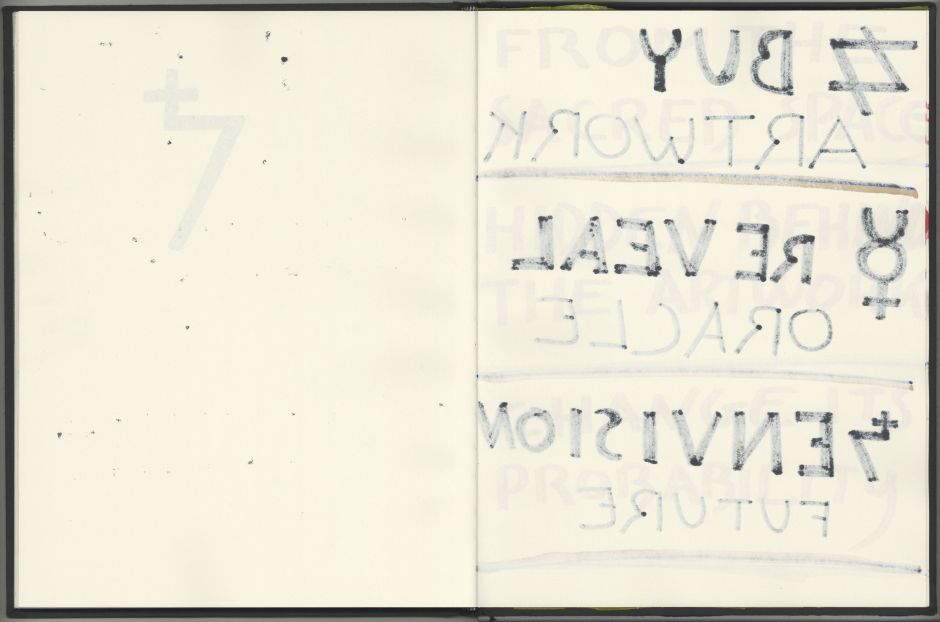 BUY
ARTWORK
REVEAL
ORACLE
ENVISION
FUTURE
FROM THE
SACRED SPACE
HIDDEN BEHIND
THE ARTWORK
CHANGE ITS
PROBABILITY